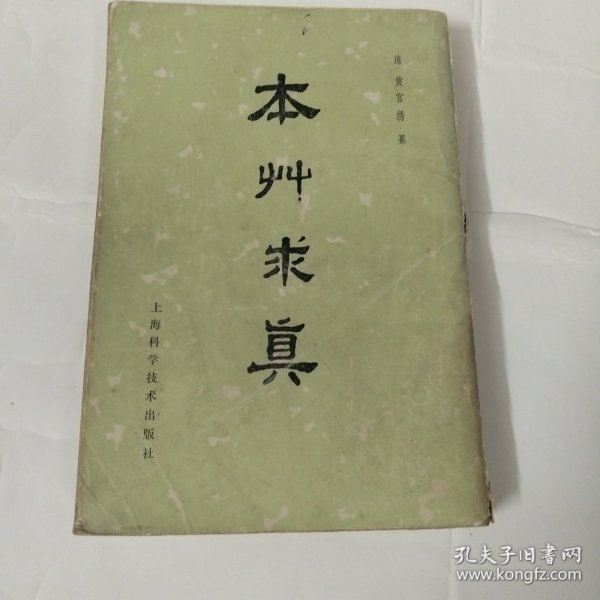 清 黄官绣 纂
本艸求真
上海科学技术出版社
孔夫子旧书网
www.kongfz.com